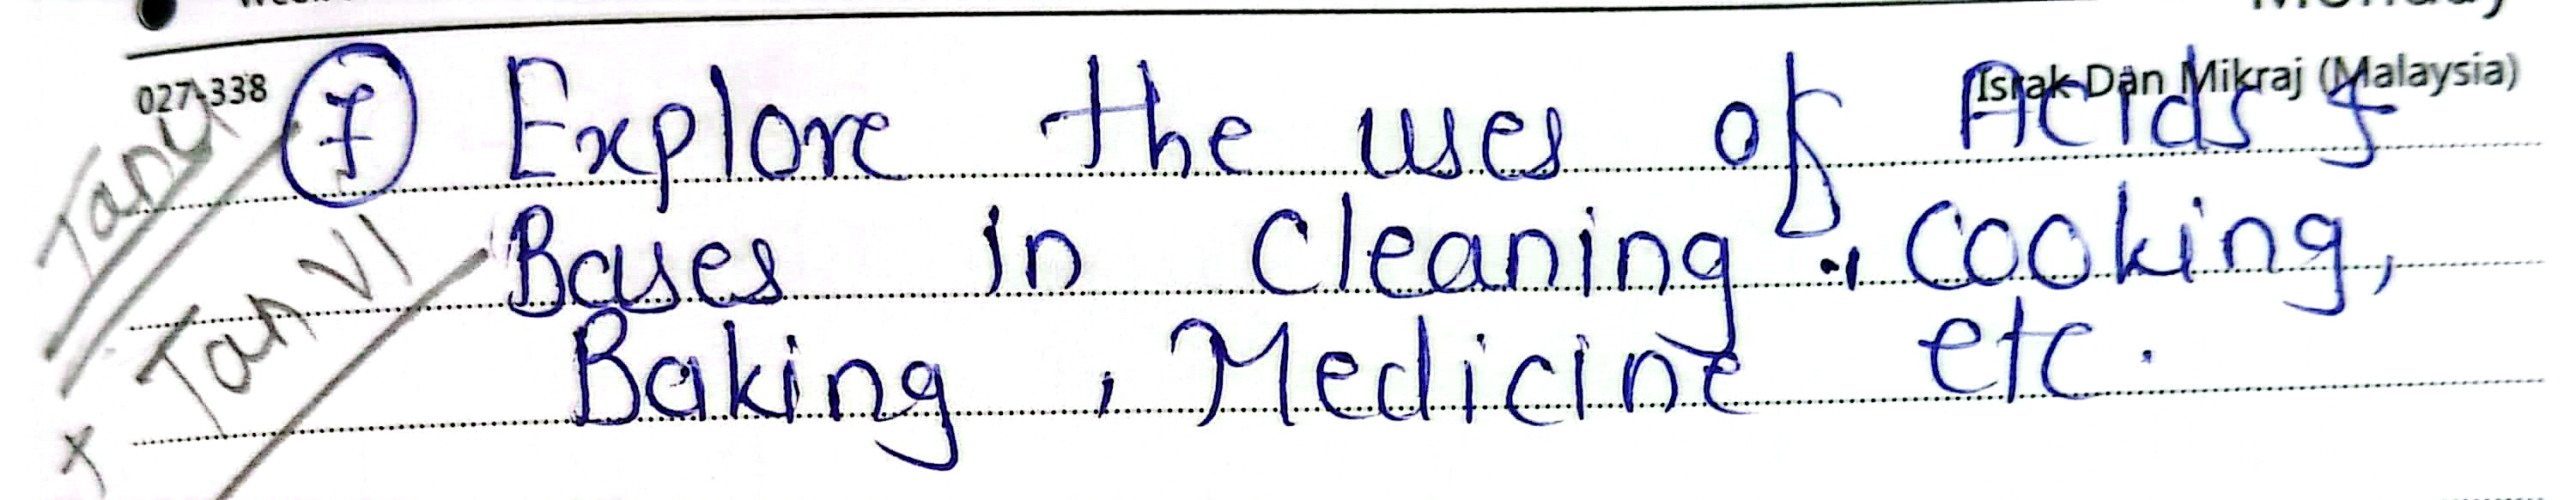 Monday
027-338
Israk Dan Mikraj (Malaysia)
Tanu
Tanvi
7 Explore the uses of Acids &
Bases in Cleaning, Cooking,
Baking, Medicine etc.